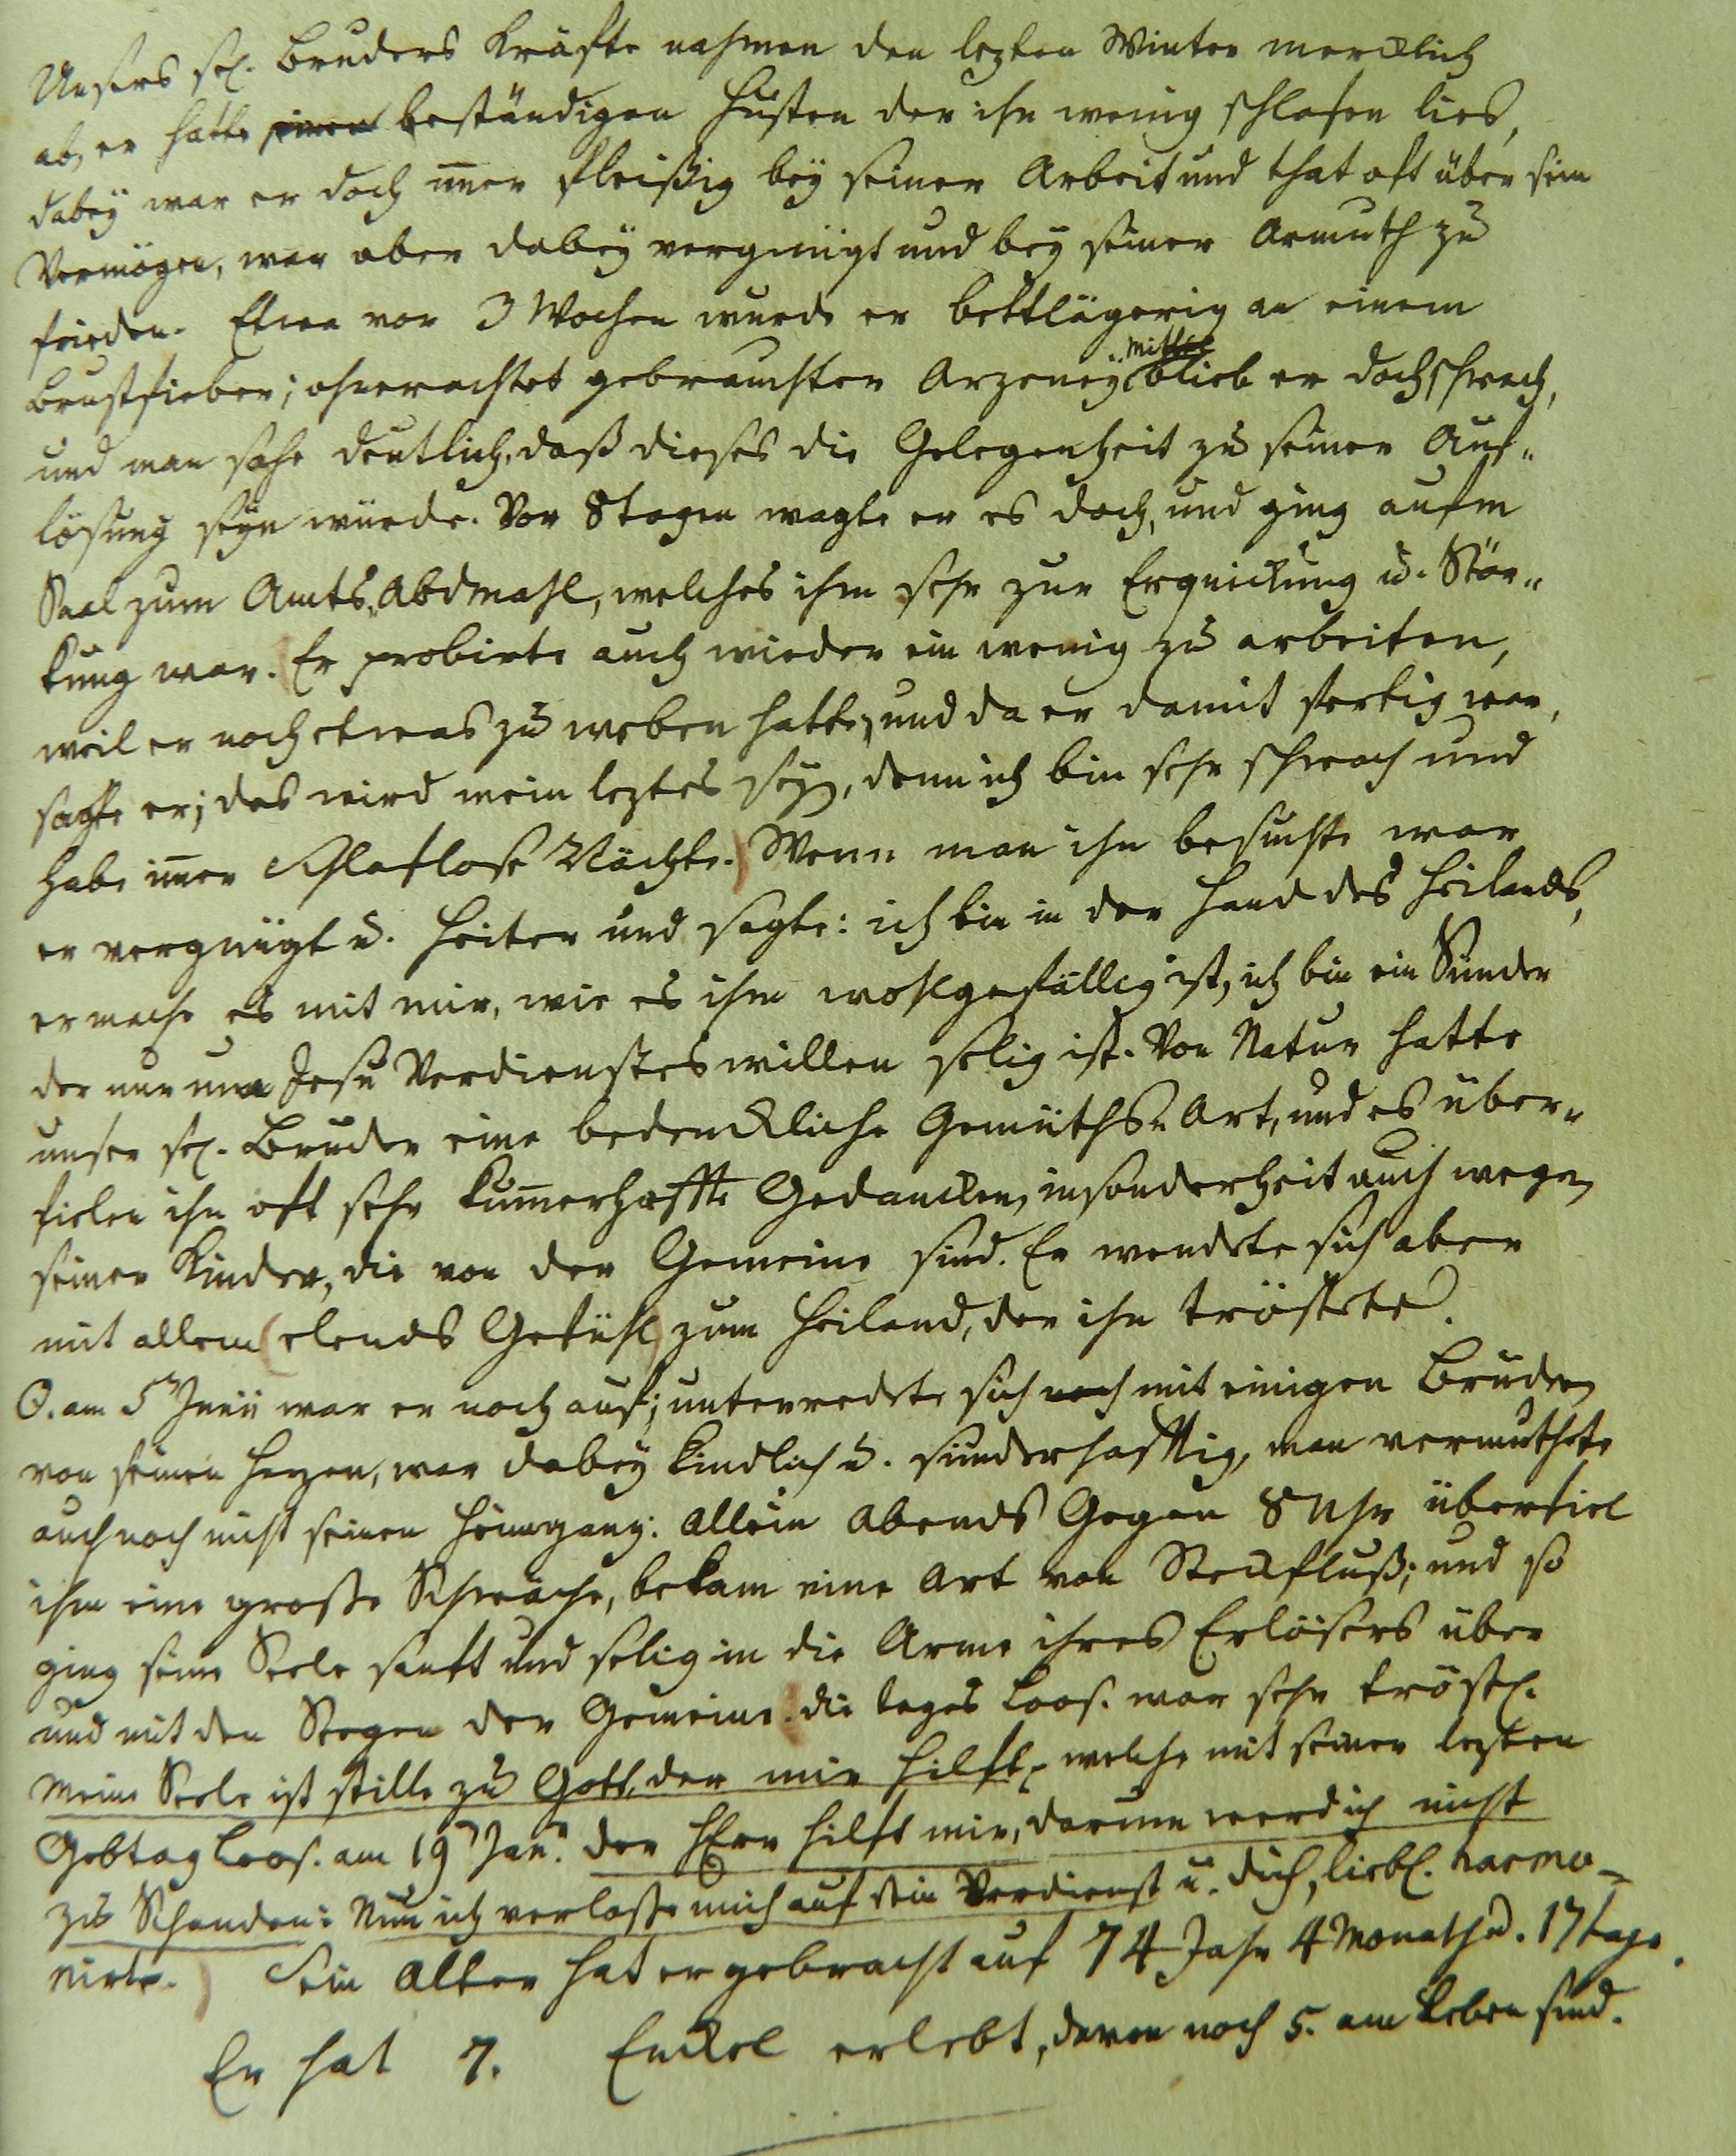 Unsers sel. Bruders Kräfte nahmen den lezten Winter mercklich
ab, er hatte einen beständigen Husten der ihn wenig schlafen lies,
dabeÿ war er doch im̄er fleißig beÿ seiner Arbeit und that oft über sein
Vermögen, war aber dabeÿ vergnügt und beÿ seiner Armuth zu
frieden. Etwa vor 3 Wochen wurde er bettlägerig an einem
Brustfieber; ohnerachtet gebrauchter Arzeneÿ-Mittel blieb er doch schwach,
und man sahe deutlich, daß dieses die Gelegenheit zu seiner Auf-
lösung seÿn würde. Vor 8 Tagen wagte er es doch, und ging aufm
Saal zum Amts-Abdmahl, welches ihm sehr zur Erquickung u. Stär-
kung war. Er probirte auch wieder ein wenig zu arbeiten,
weil er noch etwas zu weben hatte, und da er damit fertig war,
sagte er; das wird mein leztes seÿn, denn ich bin sehr schwach und
habe im̄er Schlaflose Nächte. Wenn man ihn besuchte war
er vergnügt u. heiter und sagte: ich bin in der Hand des Heilands,
er mache es mit mir, wie es ihm wohlgefällig ist, ich bin ein Sünder
der nur um Jesu Verdienstes willen selig ist. Von Natur hatte
unser sel. Bruder eine bedenckliche Gemüths-Art, und es über-
fielen ihn oft sehr kum̄erhaffte Gedancken, insonderheit auch wegen
seiner Kinder, die von der Gemeine sind. Er wendete sich aber
mit allem elends Gefühl zum Heiland, der ihn tröstete.
⊙. am 5ⁿ Junii war er noch auf; unterredete sich noch mit einigen Brüdern
von seinen Herzen, war dabeÿ kindlich u. sünderhafftig, man vermuthete
auch noch nicht seinen Heimgang: Allein Abends Gegen 8 Uhr überfiel
ihm eine große Schwäche, bekam eine Art von Steckfluß; und so
ging seine Seele sanft und selig in die Arme ihres Erlösers über
und mit den Seegen der Gemeine. die tages Loos. war sehr tröstl.
Meine Seele ist stille zu Gott, der mir hilft, welche mit seiner lezten
Gebtag Loos. am 19ⁿ Jan. der HErr hilft mir, darum werd ich nicht
zu Schanden: Nun ich verlasse mich auf dein Verdienst u. dich, liebl. harmo-
nirte. Sein Alter hat er gebracht auf 74 Jahr 4 Monath u. 17 tage.
Er hat 7. Enckel erlebt, davon noch 5. am Leben sind.